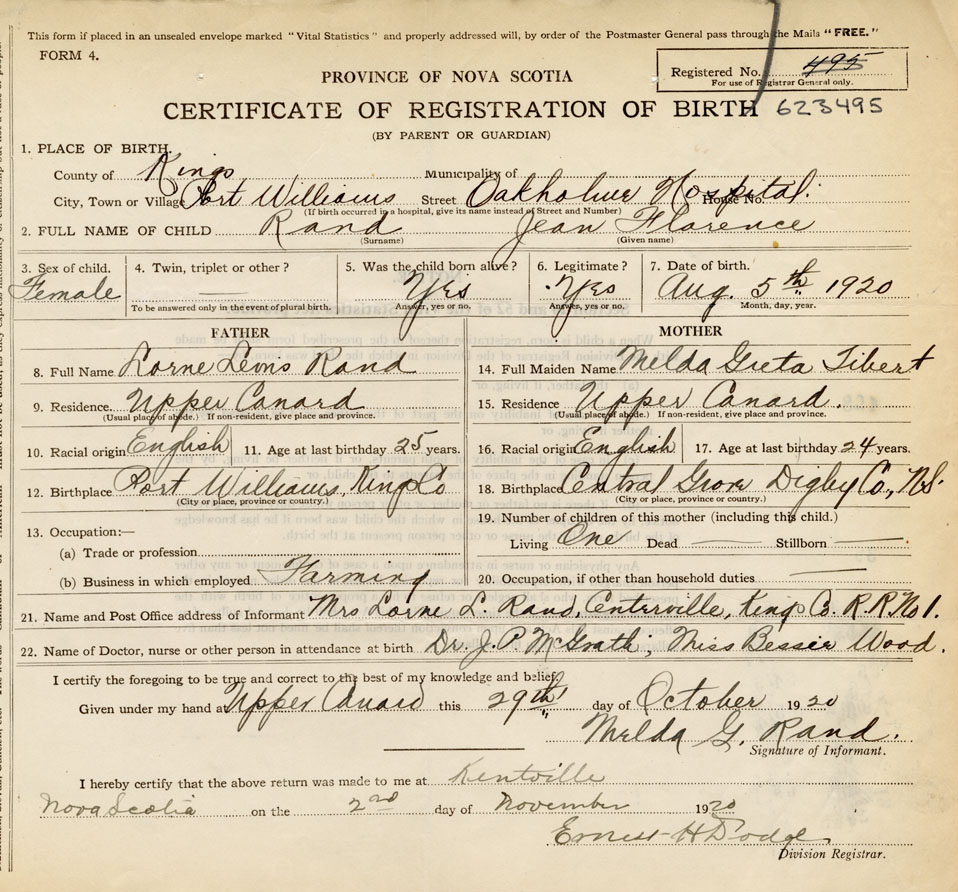 This form if placed in an unsealed envelope marked "Vital Statistics" and properly addressed will, by order of the Postmaster General pass through the Mails "FREE."
FORM 4.
Registered No. 495
For use of Registrar General only.
PROVINCE OF NOVA SCOTIA
CERTIFICATE OF REGISTRATION OF BIRTH 623495
(BY PARENT OR GUARDIAN)
1. PLACE OF BIRTH.
County of Kings Municipality of
City, Town or Village Port Williams Street Oakholme Hospital. House No.
(If birth occurred in a hospital, give its name instead of Street and Number)
2. FULL NAME OF CHILD Rand Jean Florence
(Surname) (Given name)
3. Sex of child. 4. Twin, triplet or other? 5. Was the child born alive? 6. Legitimate? 7. Date of birth.
Female Yes Yes Aug. 5th 1920
To be answered only in the event of plural birth. Answer, yes or no. Answer, yes or no. Month, day, year.
FATHER
8. Full Name Lorne Lewis Rand
9. Residence. Upper Canard
(Usual place of abode.) If non-resident, give place and province.
10. Racial origin English 11. Age at last birthday 25 years.
12. Birthplace Port Williams, King Co
(City or place, province or country.)
13. Occupation:—
(a) Trade or profession
(b) Business in which employed Farming
MOTHER
14. Full Maiden Name Melda Greta Tibert
15. Residence Upper Canard.
(Usual place of abode.) If non-resident, give place and province.
16. Racial origin English 17. Age at last birthday 24 years.
18. Birthplace Central Grove Digby Co, N.S.
(City or place, province or country.)
19. Number of children of this mother (including this child.)
Living One Dead Stillborn
20. Occupation, if other than household duties
21. Name and Post Office address of Informant Mrs Lorne L. Rand, Centerville, Kings Co. R.R. No 1.
22. Name of Doctor, nurse or other person in attendance at birth Dr. J. P. McGrath; Miss Bessie Wood.
I certify the foregoing to be true and correct to the best of my knowledge and belief.
Given under my hand at Upper Canard this 29th day of October 1920
Melda G. Rand.
Signature of Informant.
I hereby certify that the above return was made to me at Kentville
Nova Scotia on the 2nd day of November 1920
Ernest H Dodge
Division Registrar.